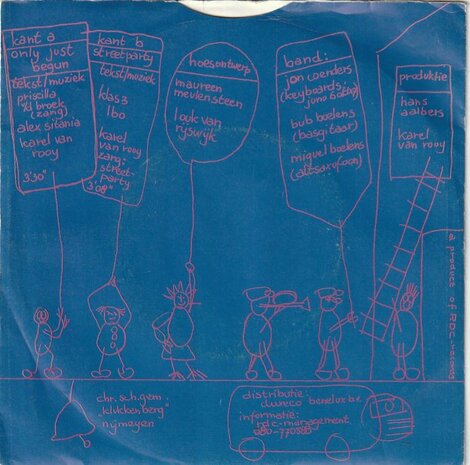 kant a
only just
begun
tekst/muziek
priscilla
v'd broek
(zang)
alex sitania
karel van
rooy
3'30"
kant b
streetparty
tekst/muziek
klas 3
lbo
karel
van rooy
zang:
street-
party
3'08"
hoesontwerp
maureen
meulensteen
louk van
ryswijk
band:
jon coenders
(keyboards,
juno 60)
bub boelens
(basgitaar)
miquel boelens
(altsaxofoon)
produktie
hans
aalbers
karel
van rooy
a produce of RDC-records
chr. sch. gem.
"klokkenberg"
nijmegen
distributie:
dureco benelux b.v.
informatie:
rdc-management
080-770588